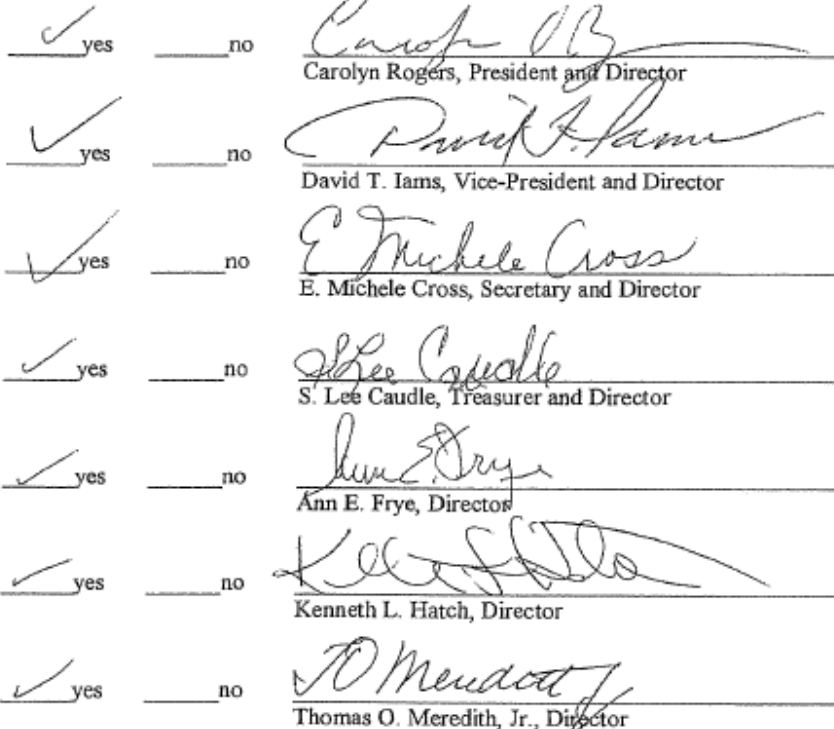 ✓ yes ____ no Carolyn
Carolyn Rogers, President and Director
✓ yes ____ no David T. Iams
David T. Iams, Vice-President and Director
✓ yes ____ no E Michele Cross
E. Michele Cross, Secretary and Director
✓ yes ____ no S Lee Caudle
S. Lee Caudle, Treasurer and Director
✓ yes ____ no Ann E. Frye
Ann E. Frye, Director
✓ yes ____ no
Kenneth L. Hatch, Director
✓ yes ____ no TO Meredith Jr
Thomas O. Meredith, Jr., Director